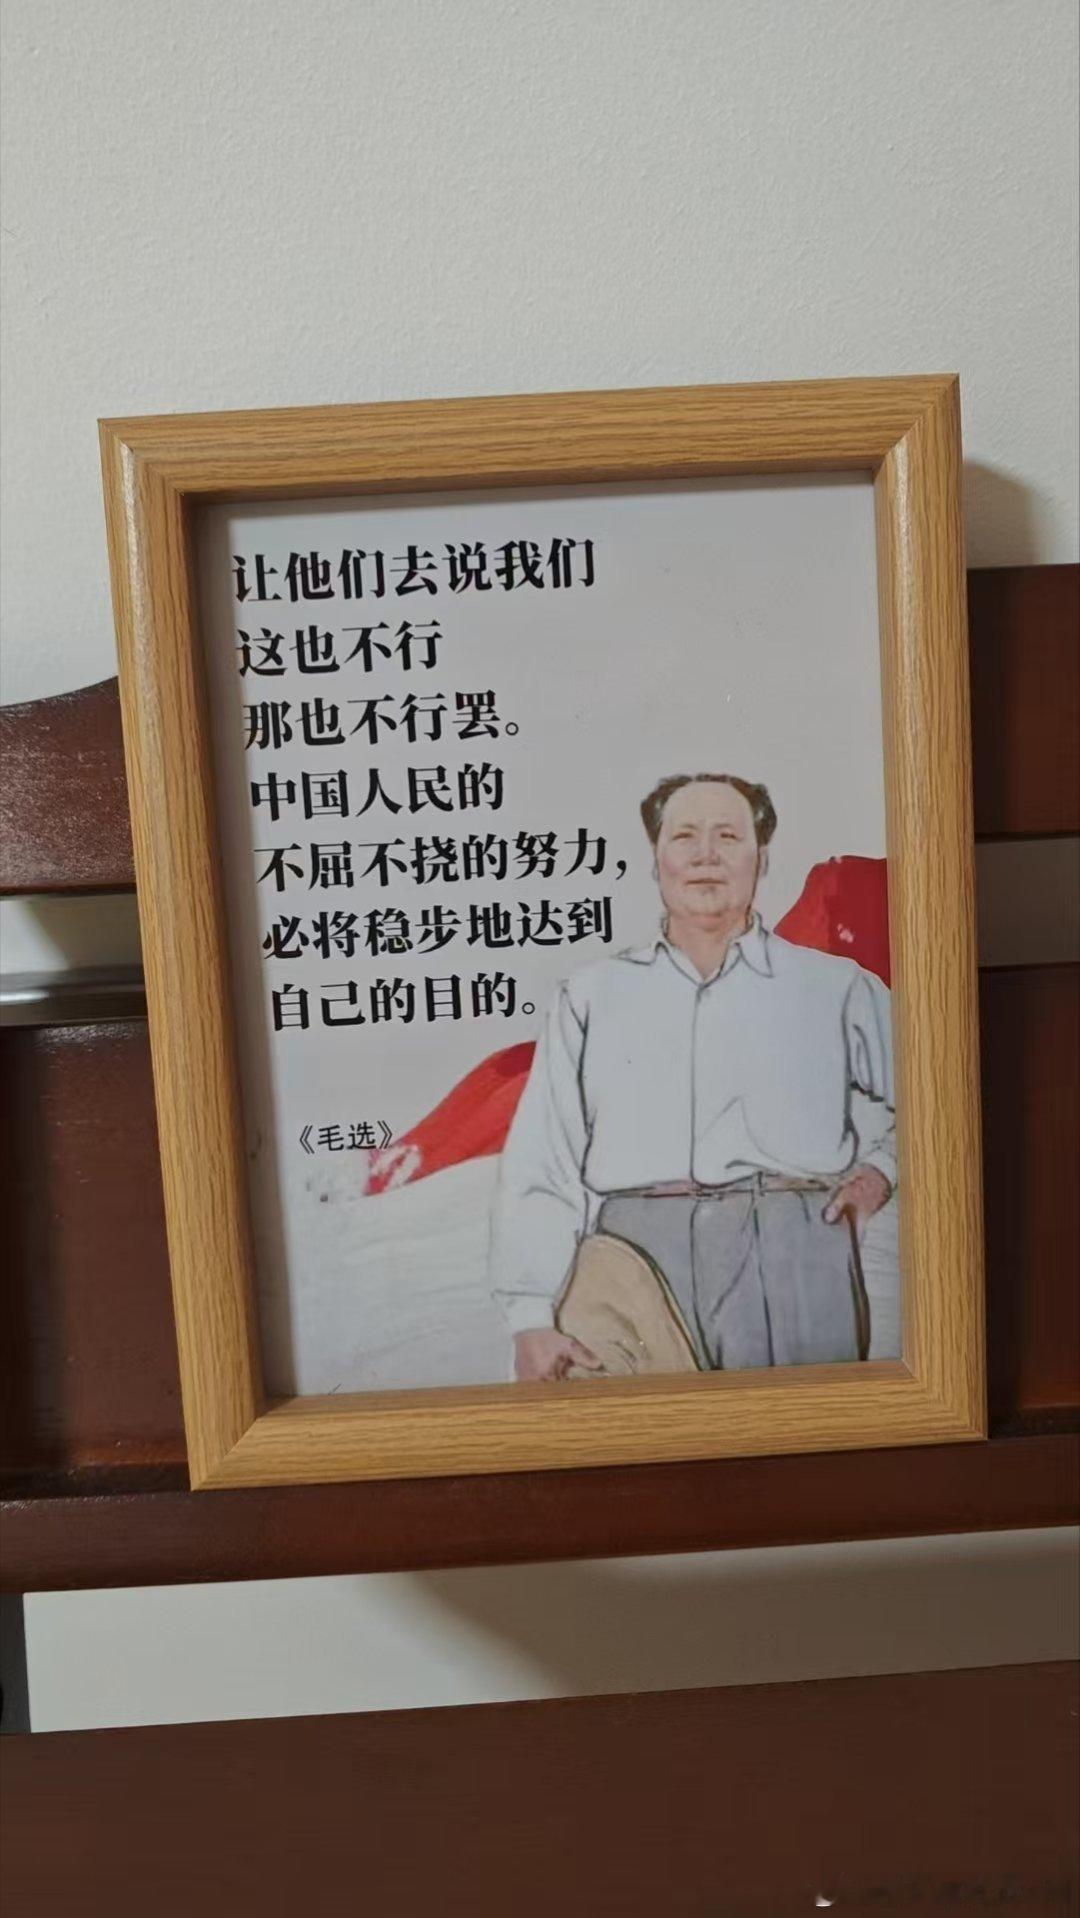 让他们去说我们
这也不行
那也不行罢。
中国人民的
不屈不挠的努力，
必将稳步地达到
自己的目的。
《毛选》